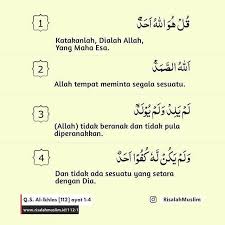 1
قُلْ هُوَ اللّٰهُ اَحَدٌۚ
Katakanlah, Dialah Allah,
Yang Maha Esa.
2
اَللّٰهُ الصَّمَدُۚ
Allah tempat meminta segala sesuatu.
3
لَمْ يَلِدْ وَلَمْ يُوْلَدْۙ
(Allah) tidak beranak dan tidak pula
diperanakkan.
4
وَلَمْ يَكُنْ لَّهٗ كُفُوًا اَحَدٌ
Dan tidak ada sesuatu yang setara
dengan Dia.
Q.S. Al-Ikhlas [112] ayat 1-4
RisalahMuslim
www.risalahmuslim.id/112-1